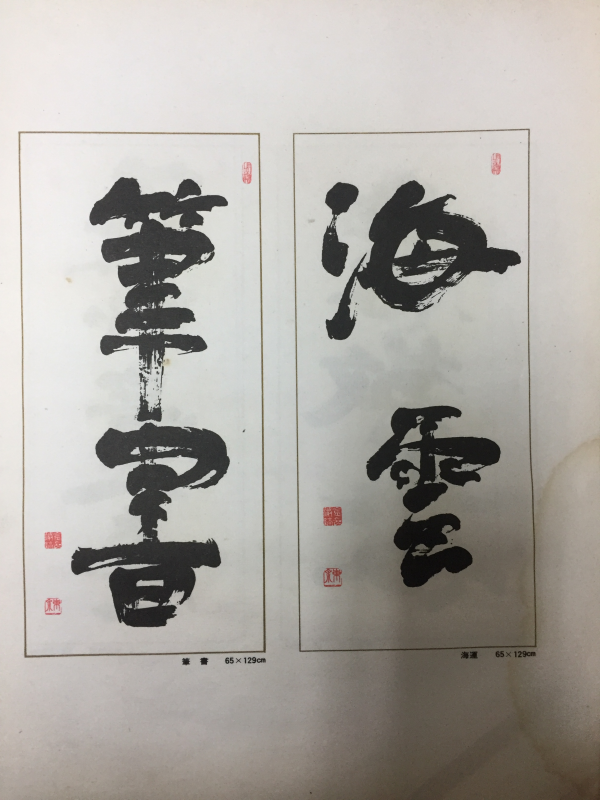 海雲
筆書
海運 65×129cm
筆 書 65×129cm